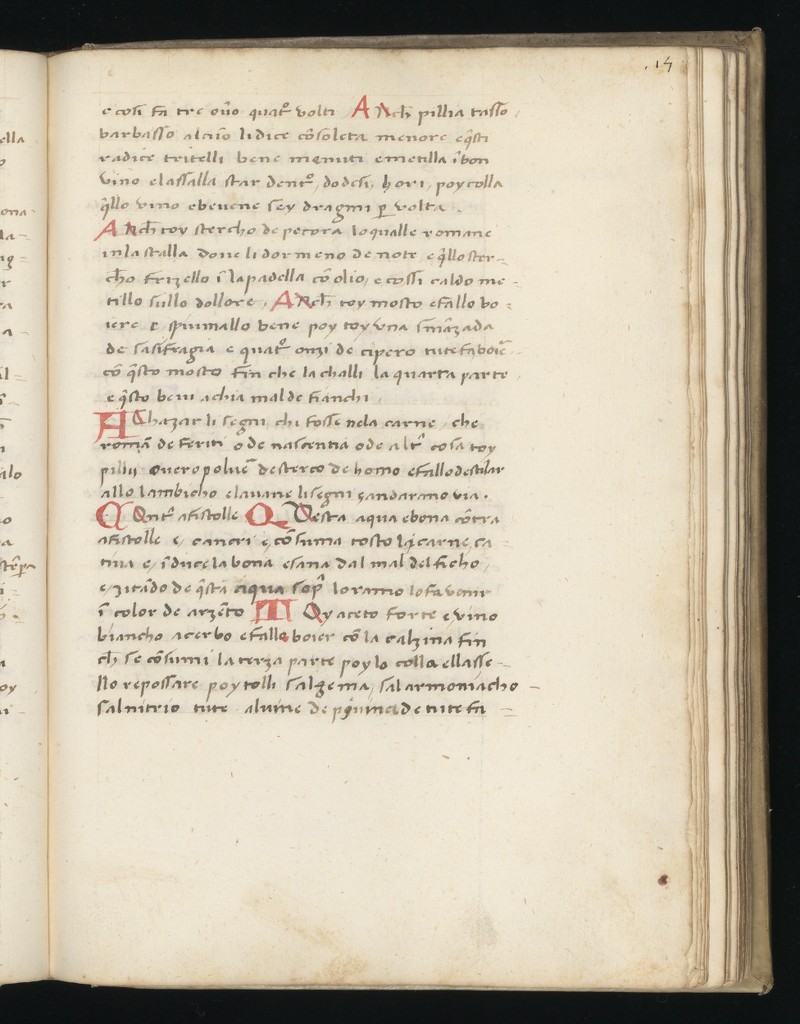 .14
e cosi fa tre ouo quat͂ volti Anch̄ pillia tasso
barbasso alcuo li dice cōsoleta menore e q̄sti
radice tritelli bene menuti e metilla ī bon
vino e lassalla star dent͂o dodesi hori, poy colla
q̄llo vino e beuene sey dragmi p̄ volta.
Anch̄ toy stercho de pecora lo qualle romane
in la stalla doue li dormeno de note e q̄llo ster-
ch̄o frizello ī la padella cō olio, e cossi caldo me-
tillo sullo dollore. Anch̄ toy mosto e fallo bo-
iere e spiumallo bene poy toy vna smāzada
de sasifragia e quat͂ onzi de cipero tute fa boiē
cō q̄sto mosto fin che la challi la quarta parte
e q̄sto beui achia mal de fianchi.
A Chazar li segni chi fosse nela carne, che
romā de feriti o de nascentia o de alt͂ cosa toy
pilij ouero poluē de sterco de homo e fallo destilar
allo lambicho e lauane li segni sandarano via.
Cont͂ a fistolle Questa aqua e bona cōtra
a fistolle e, cancri e cōsuma tosto la carne ca-
tiua e, īduce la bona e sana dal mal del ficho,
e, zitādo de q̄sta aqua sop͂ lo ramo lo fa venir
ī color de arzēto Toy aceto forte e vino
biancho acerbo e falle boier cō la calzina fin
ch̄ se cōsumi la terza parte poy lo colla e llasse-
llo repossare poy tolli sal gema, sal armoniacho
sal nitrio tute alume de piuma de tute fa